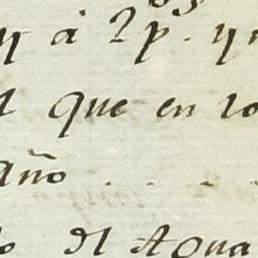 y á 2 p.s y
que en lo
año . . . .
del Agua